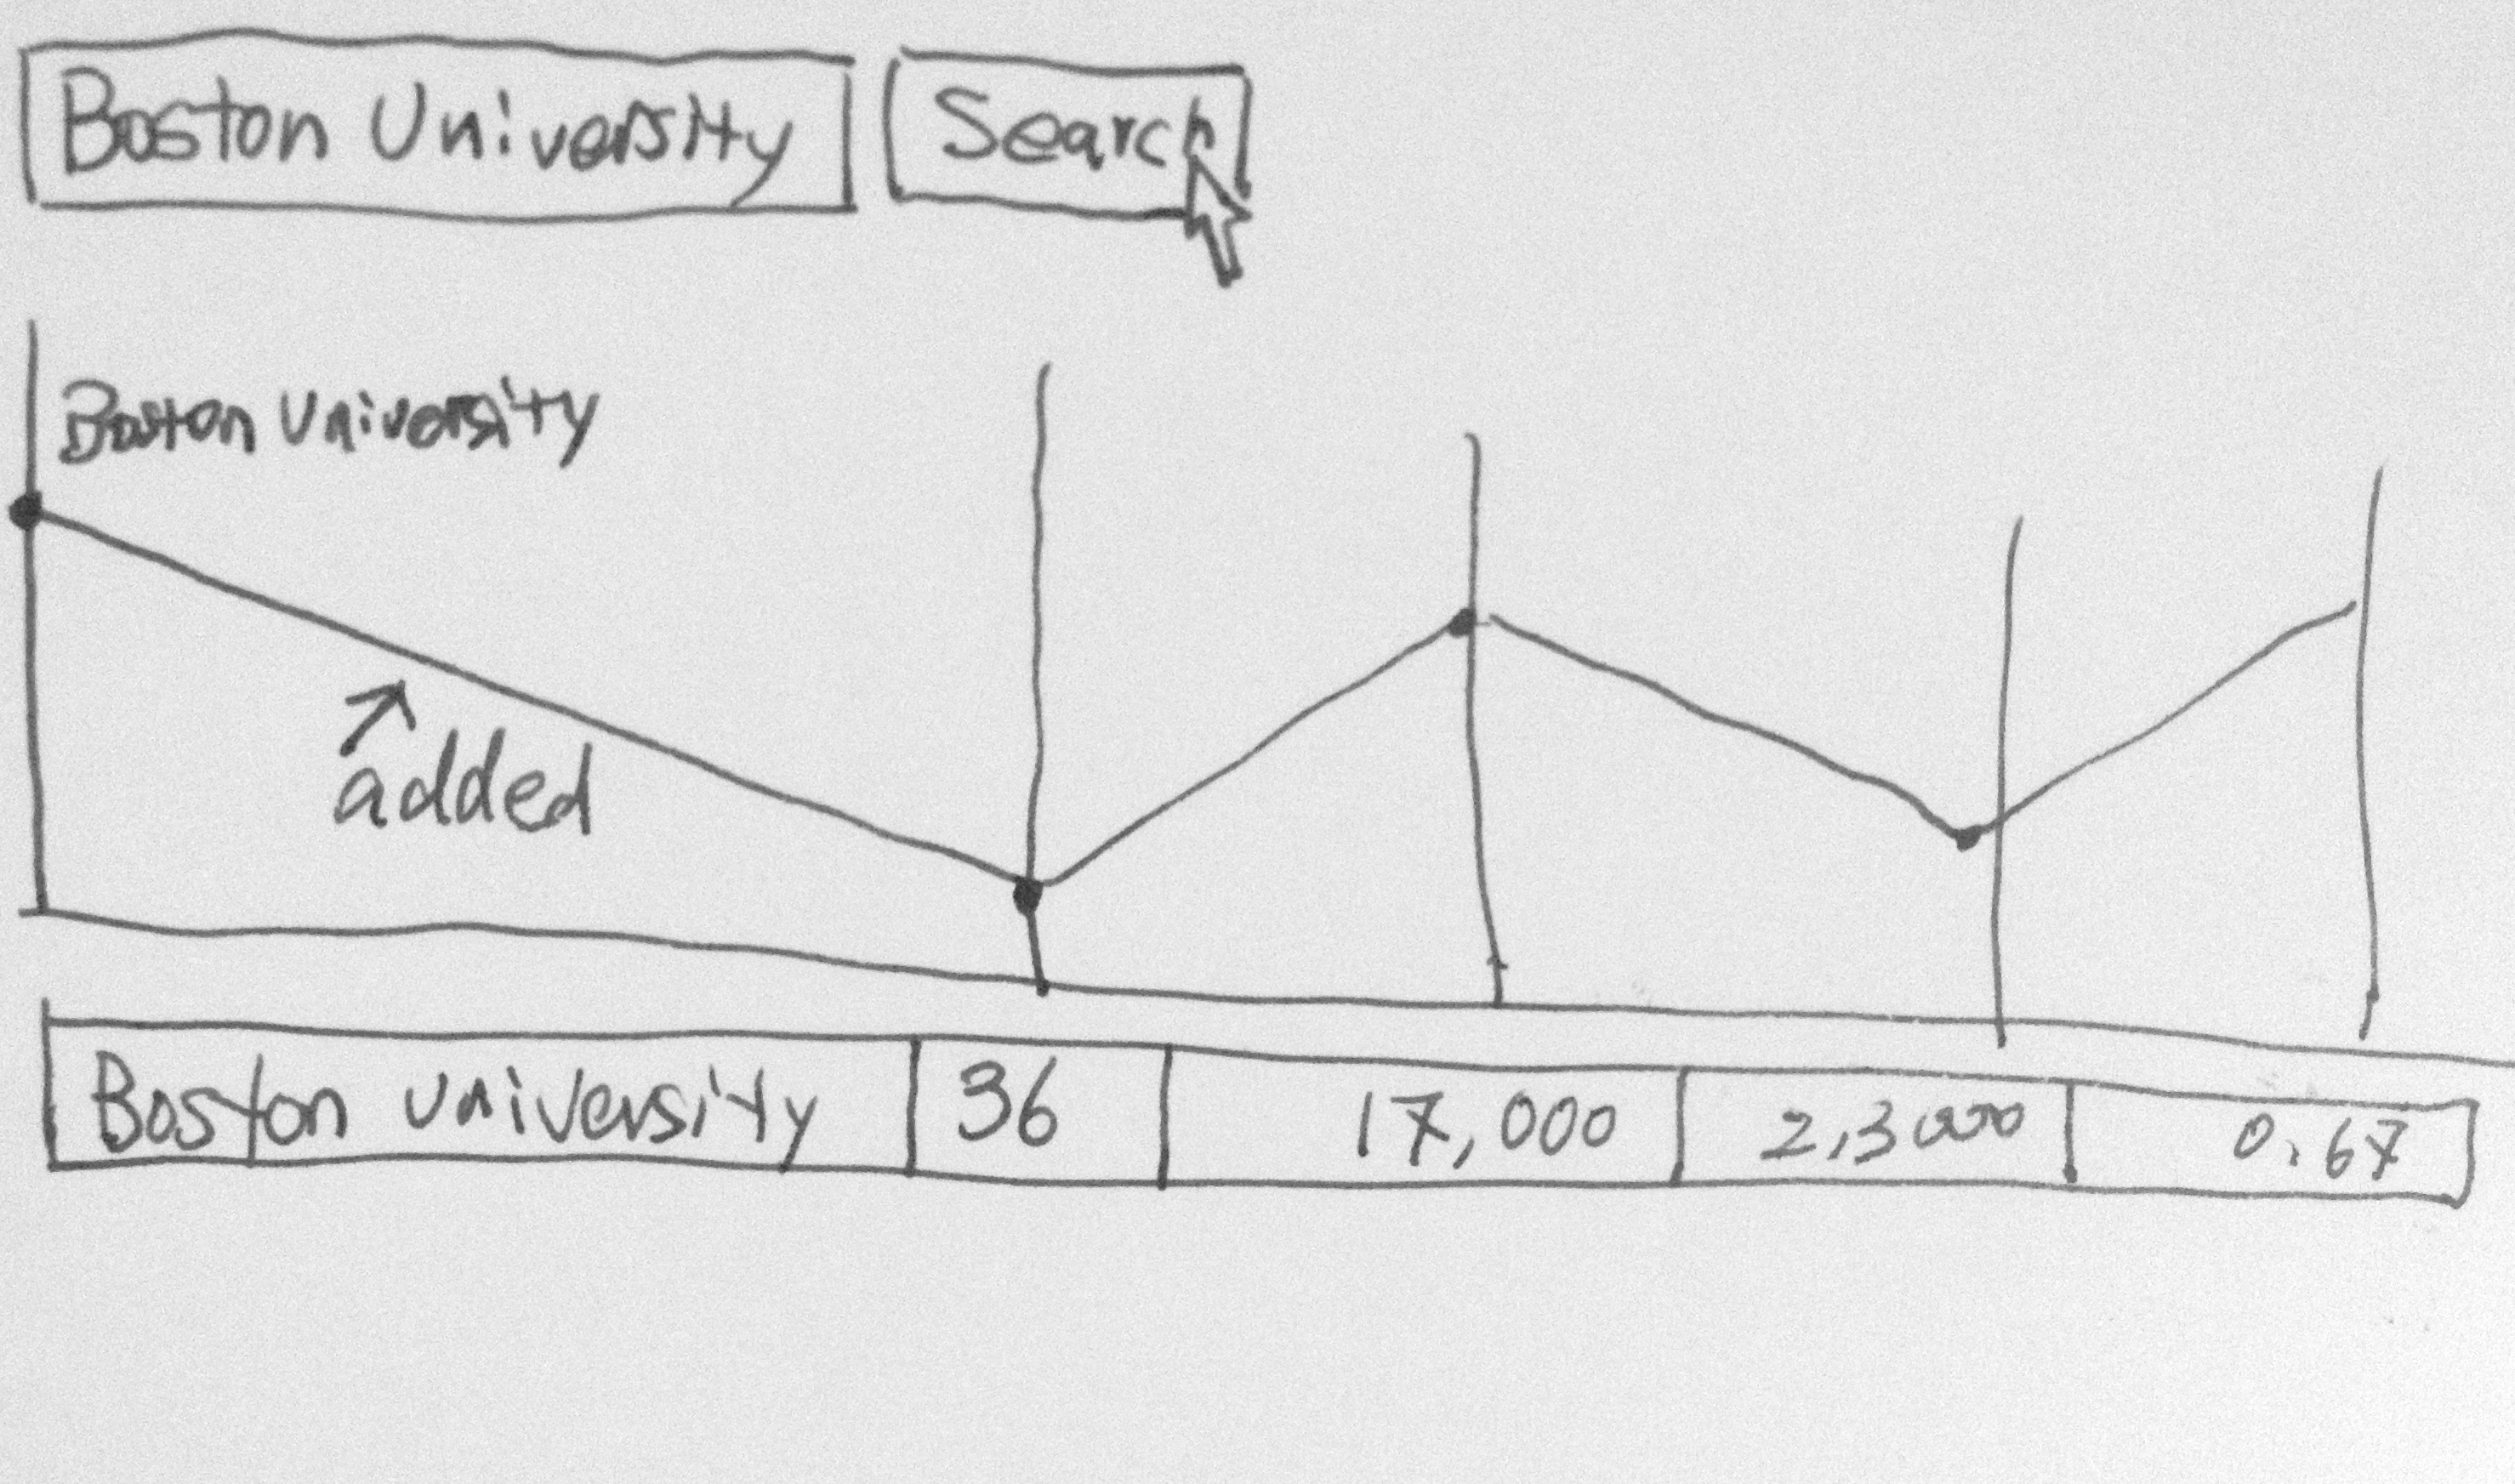 Boston University Search
Boston University
added
Boston University 36 17,000 2,3000 0.67